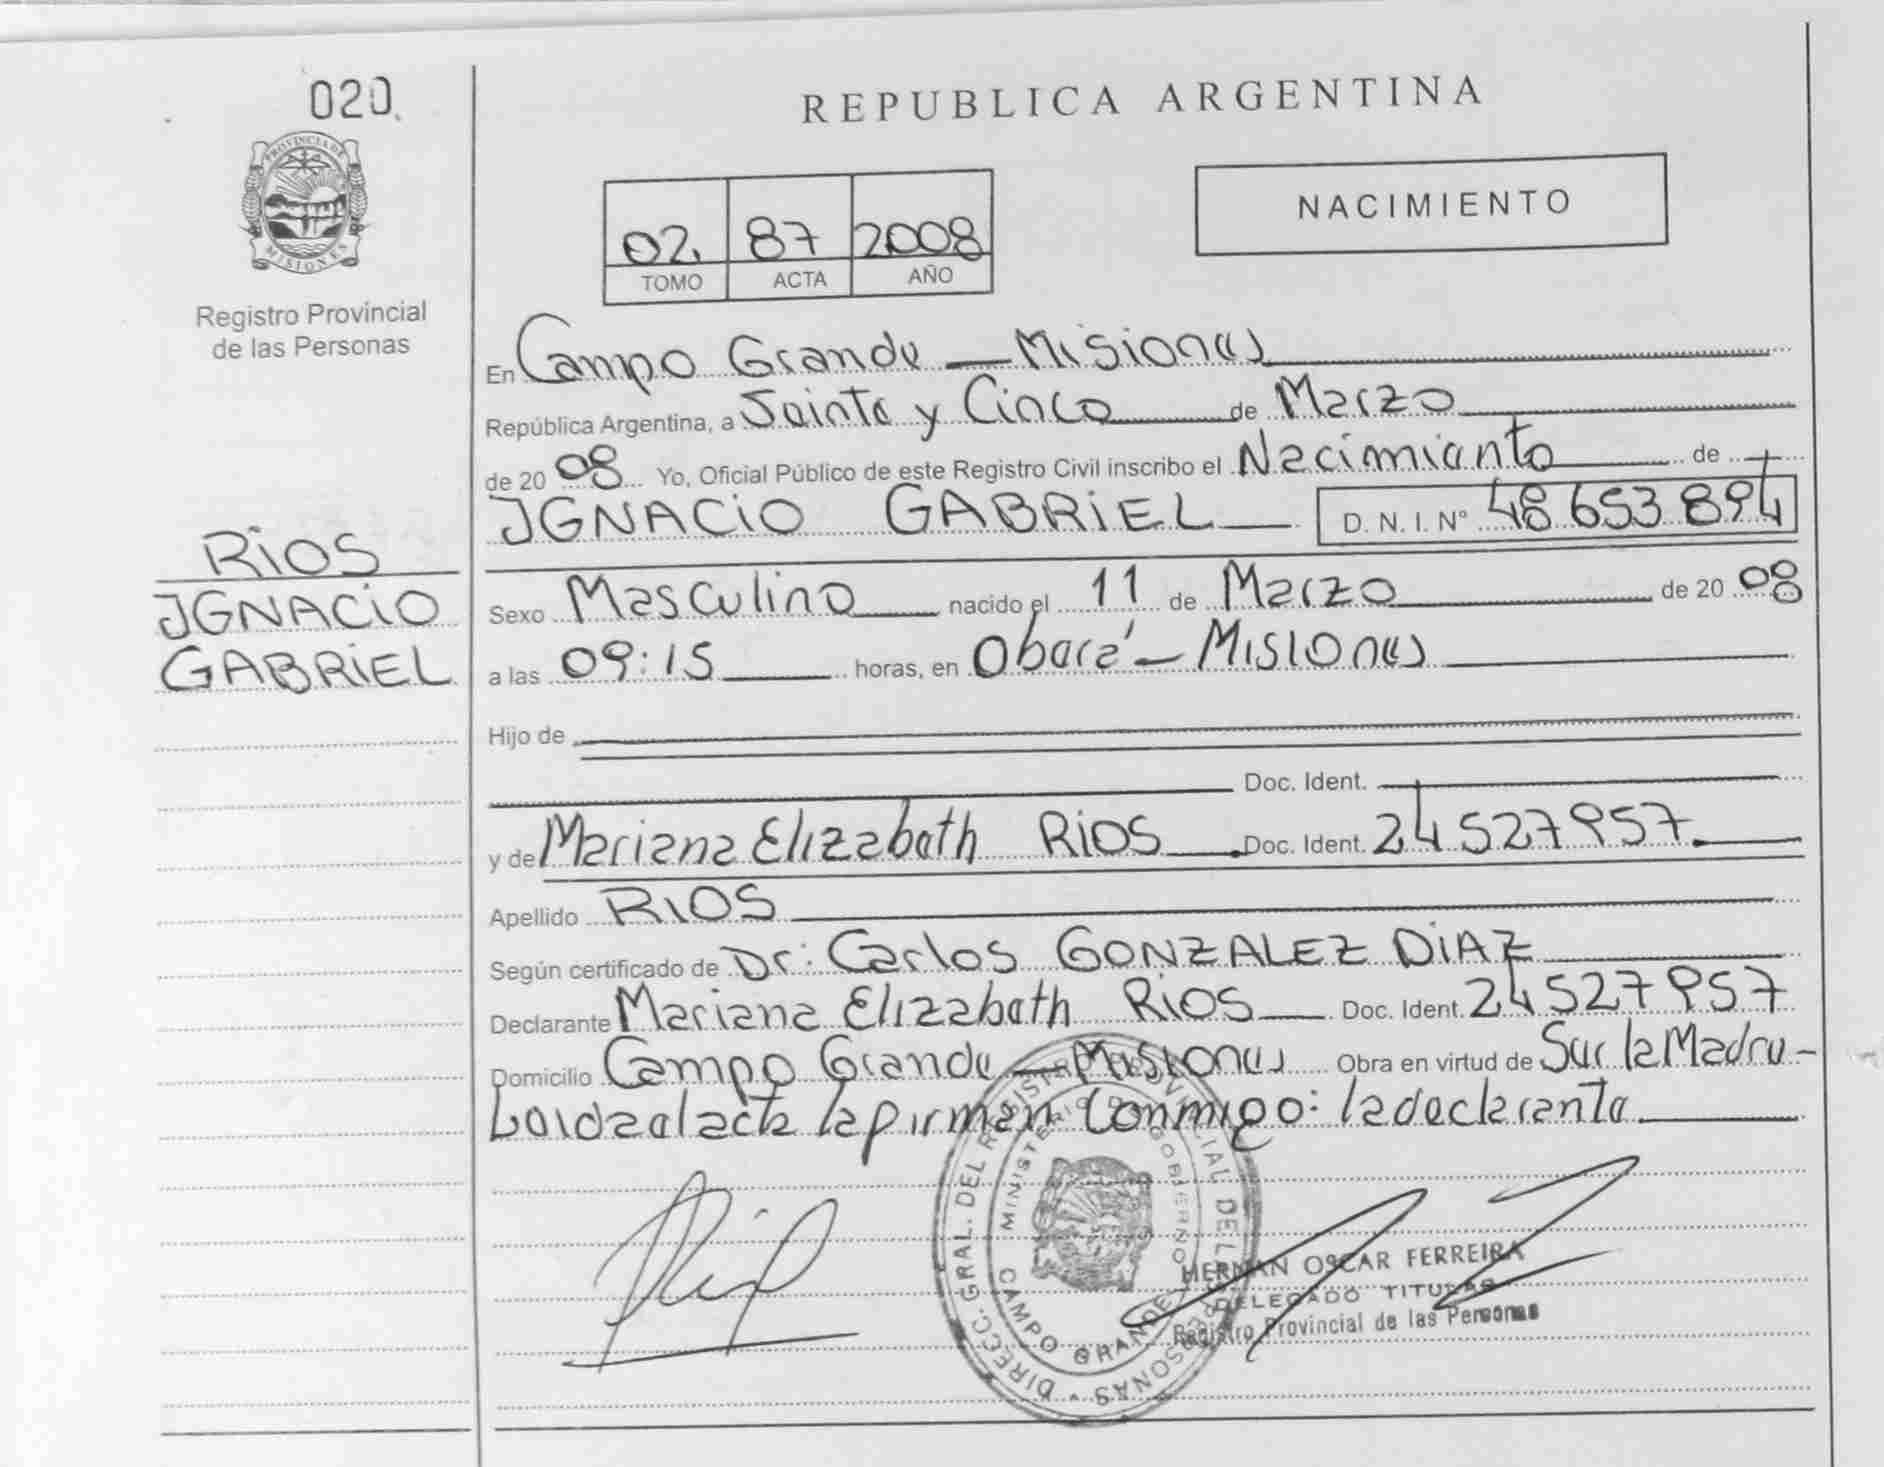 020
PROVINCIA DE
MISIONES
Registro Provincial
de las Personas
REPUBLICA ARGENTINA
NACIMIENTO
02 87 2008
TOMO ACTA AÑO
En Campo Grande — Misiones
República Argentina, a Veinte y Cinco de Marzo
de 2008 Yo, Oficial Público de este Registro Civil inscribo el Nacimiento de
IGNACIO GABRIEL D. N. I. Nº 48 653 894
RIOS
IGNACIO
GABRIEL
Sexo Masculino nacido el 11 de Marzo de 2008
a las 09:15 horas, en Oberá — Misiones
Hijo de
Doc. Ident.
y de Mariana Elizabeth RIOS Doc. Ident. 24527957
Apellido RIOS
Según certificado de Dr: Carlos GONZALEZ DIAZ
Declarante Mariana Elizabeth RIOS Doc. Ident. 24527957
Domicilio Campo Grande — Misiones Obra en virtud de Ser la Madre -
Leida el acta la firman Conmigo: la declarante
DIRECC. GRAL. DEL REGISTRO PROVINCIAL DE LAS PERSONAS
MINISTERIO DE GOBIERNO
CAMPO GRANDE
HERNAN OSCAR FERREIRA
DELEGADO TITULAR
Registro Provincial de las Personas